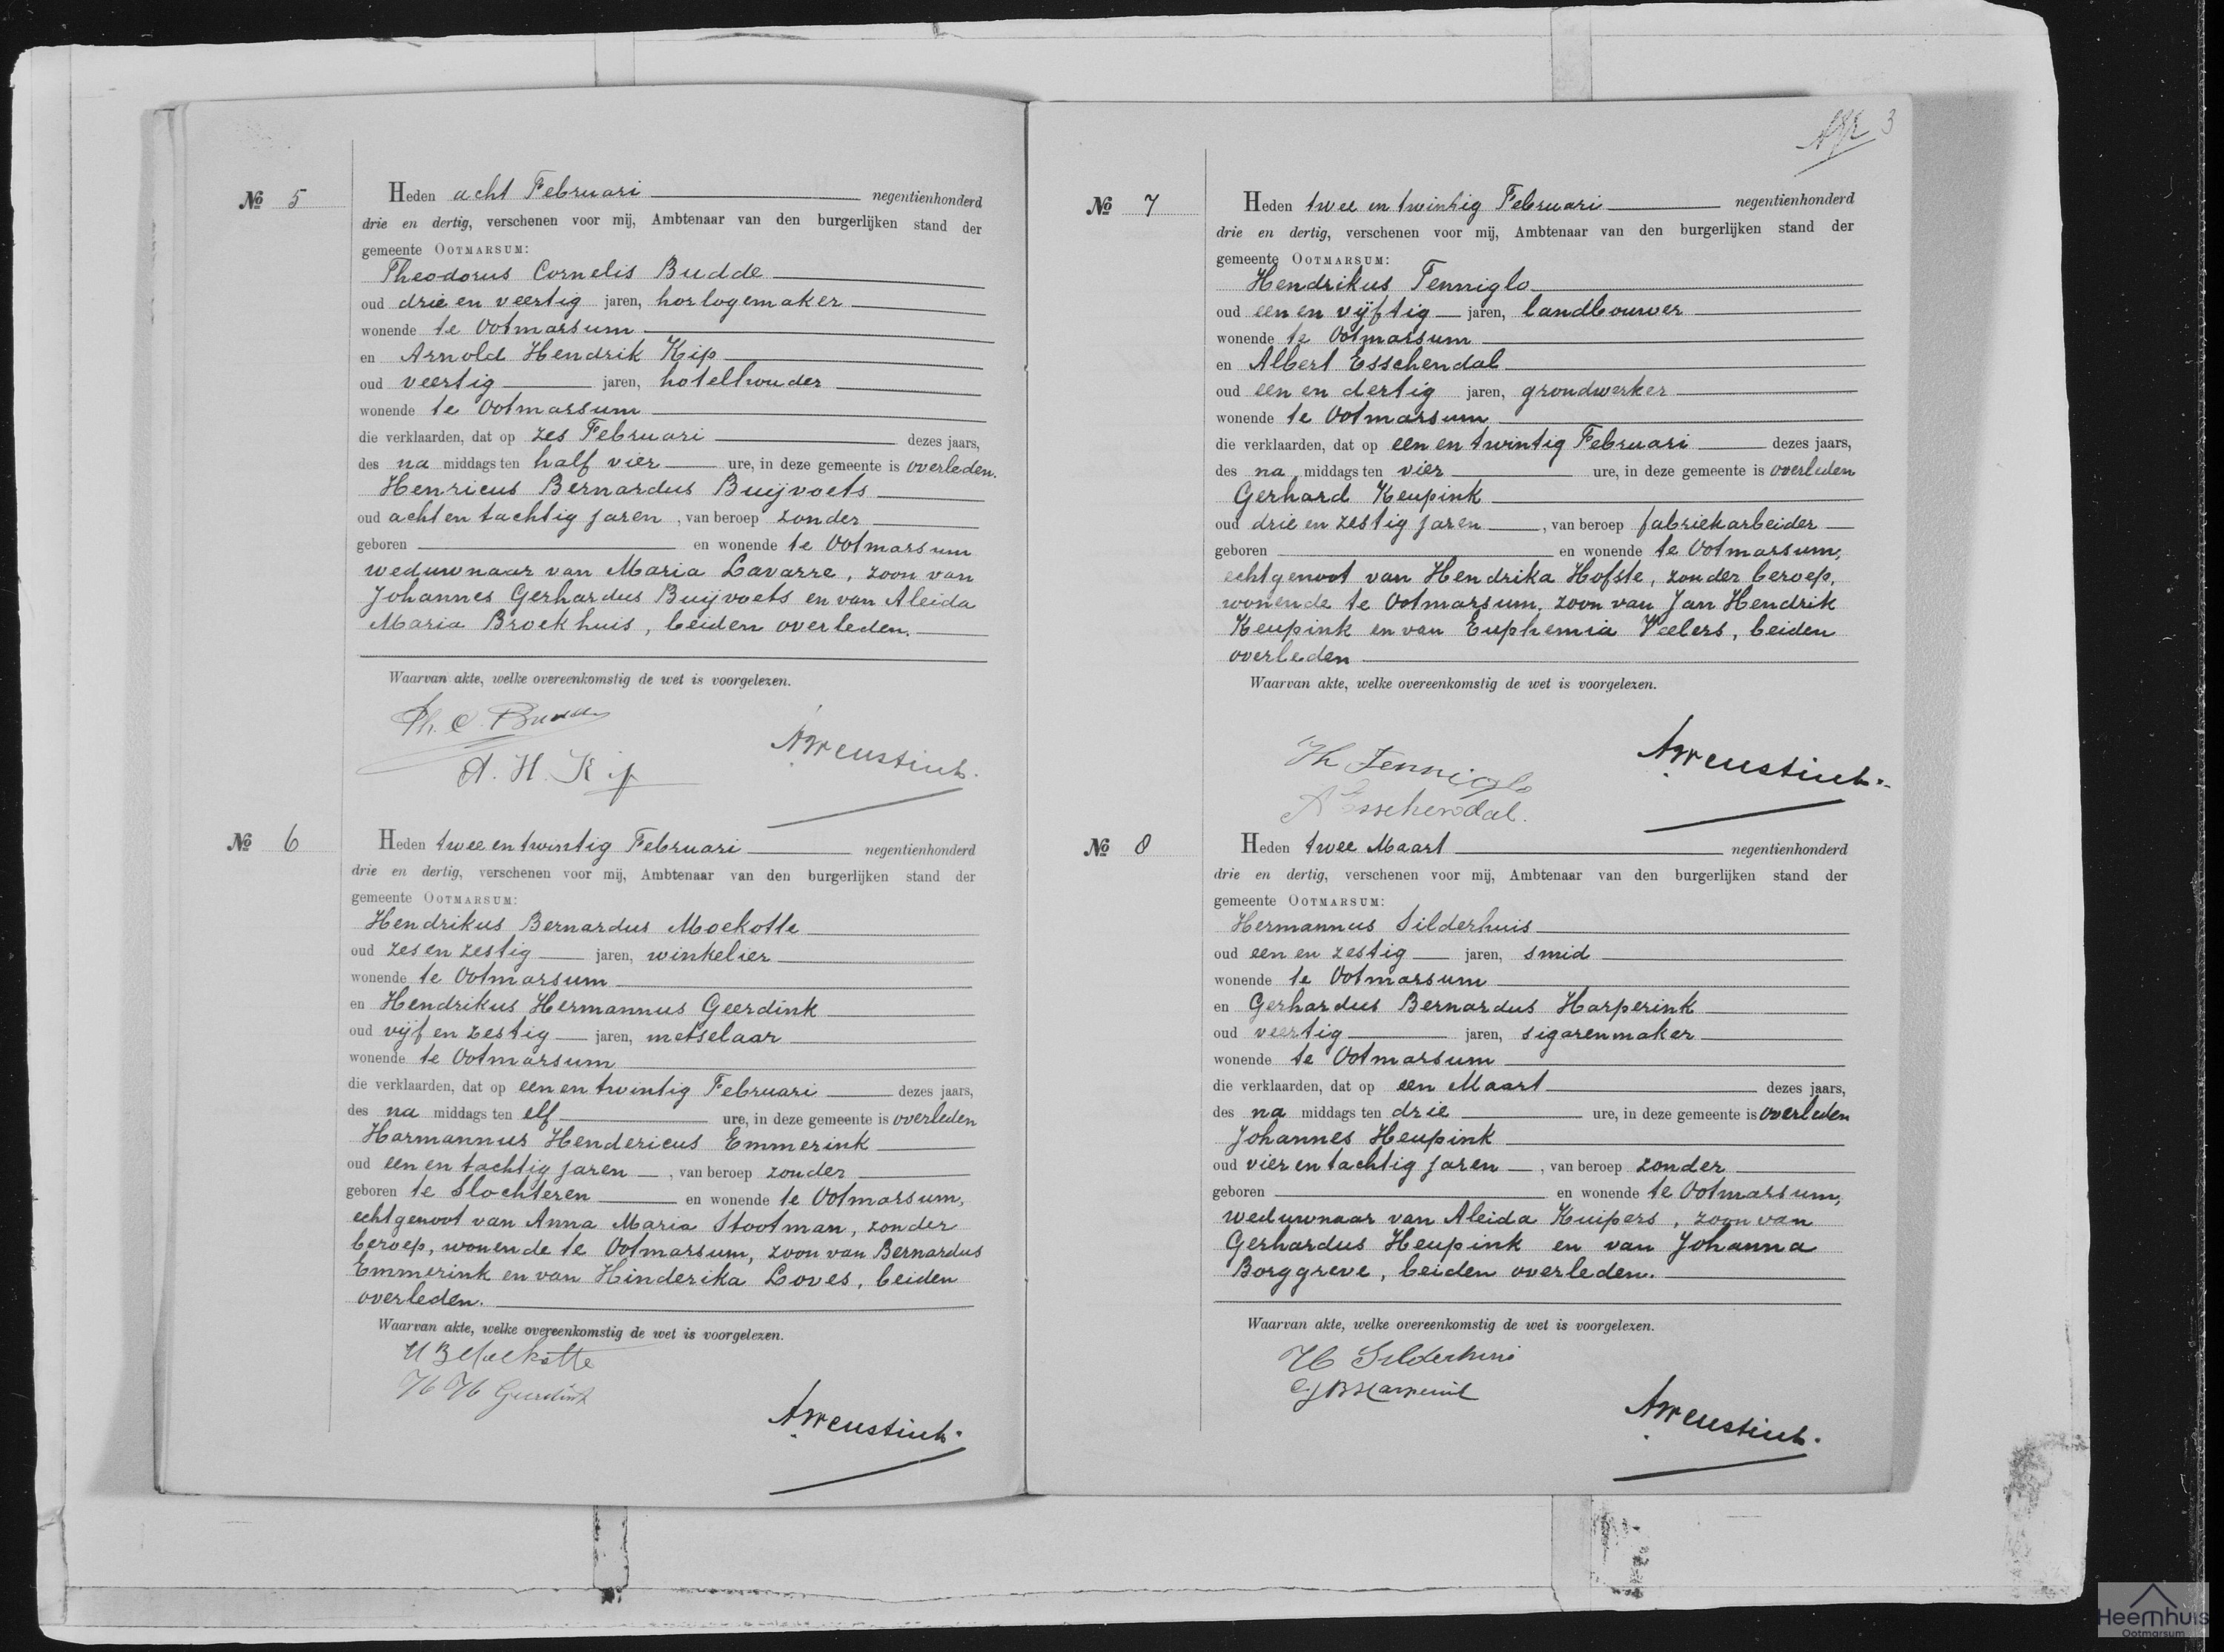 № 5
Heden acht Februari negentienhonderd
drie en dertig, verschenen voor mij, Ambtenaar van den burgerlijken stand der
gemeente OOTMARSUM:
Theodorus Cornelis Budde
oud drie en veertig jaren, horlogemaker
wonende te Ootmarsum
en Arnold Hendrik Kip
oud veertig jaren, hotelhouder
wonende te Ootmarsum
die verklaarden, dat op zes Februari dezes jaars,
des na middags ten half vier ure, in deze gemeente is overleden.
Henricus Bernardus Buijvoets
oud acht en tachtig jaren, van beroep zonder
geboren en wonende te Ootmarsum
weduwnaar van Maria Lavarre, zoon van
Johannes Gerhardus Buijvoets en van Aleida
Maria Broekhuis, beiden overleden.
Waarvan akte, welke overeenkomstig de wet is voorgelezen.
Th. C. Budde
A. H. Kip
№ 6
Heden twee en twintig Februari negentienhonderd
drie en dertig, verschenen voor mij, Ambtenaar van den burgerlijken stand der
gemeente OOTMARSUM:
Hendrikus Bernardus Moekotte
oud zes en zestig jaren, winkelier
wonende te Ootmarsum
en Hendrikus Hermannus Geerdink
oud vijf en zestig jaren, metselaar
wonende te Ootmarsum
die verklaarden, dat op een en twintig Februari dezes jaars,
des na middags ten elf ure, in deze gemeente is overleden
Harmannus Hendericus Emmerink
oud een en tachtig jaren, van beroep zonder
geboren te Slochteren en wonende te Ootmarsum,
echtgenoot van Anna Maria Stootman, zonder
beroep, wonende te Ootmarsum, zoon van Bernardus
Emmerink en van Hinderika Loves, beiden
overleden.
Waarvan akte, welke overeenkomstig de wet is voorgelezen.
H B Moekotte
H H Geerdink
3
№ 7
Heden twee en twintig Februari negentienhonderd
drie en dertig, verschenen voor mij, Ambtenaar van den burgerlijken stand der
gemeente OOTMARSUM:
Hendrikus Tenniglo
oud een en vijftig jaren, landbouwer
wonende te Ootmarsum
en Albert Esschendal
oud een en dertig jaren, grondwerker
wonende te Ootmarsum
die verklaarden, dat op een en twintig Februari dezes jaars,
des na middags ten vier ure, in deze gemeente is overleden
Gerhard Keupink
oud drie en zestig jaren, van beroep fabriekarbeider
geboren en wonende te Ootmarsum,
echtgenoot van Hendrika Hofste, zonder beroep,
wonende te Ootmarsum, zoon van Jan Hendrik
Keupink en van Euphemia Voelers, beiden
overleden
Waarvan akte, welke overeenkomstig de wet is voorgelezen.
H Tenniglo
A Esschendal.
№ 8
Heden twee Maart negentienhonderd
drie en dertig, verschenen voor mij, Ambtenaar van den burgerlijken stand der
gemeente OOTMARSUM:
Hermannus Silderhuis
oud een en zestig jaren, smid
wonende te Ootmarsum
en Gerhardus Bernardus Harperink
oud veertig jaren, sigarenmaker
wonende te Ootmarsum
die verklaarden, dat op een Maart dezes jaars,
des na middags ten drie ure, in deze gemeente is overleden
Johannes Heupink
oud vier en tachtig jaren, van beroep zonder
geboren en wonende te Ootmarsum,
weduwnaar van Aleida Kuipers, zoon van
Gerhardus Heupink en van Johanna
Borggreve, beiden overleden.
Waarvan akte, welke overeenkomstig de wet is voorgelezen.
H Silderhuis
G B Harperink
Heemhuis
Ootmarsum